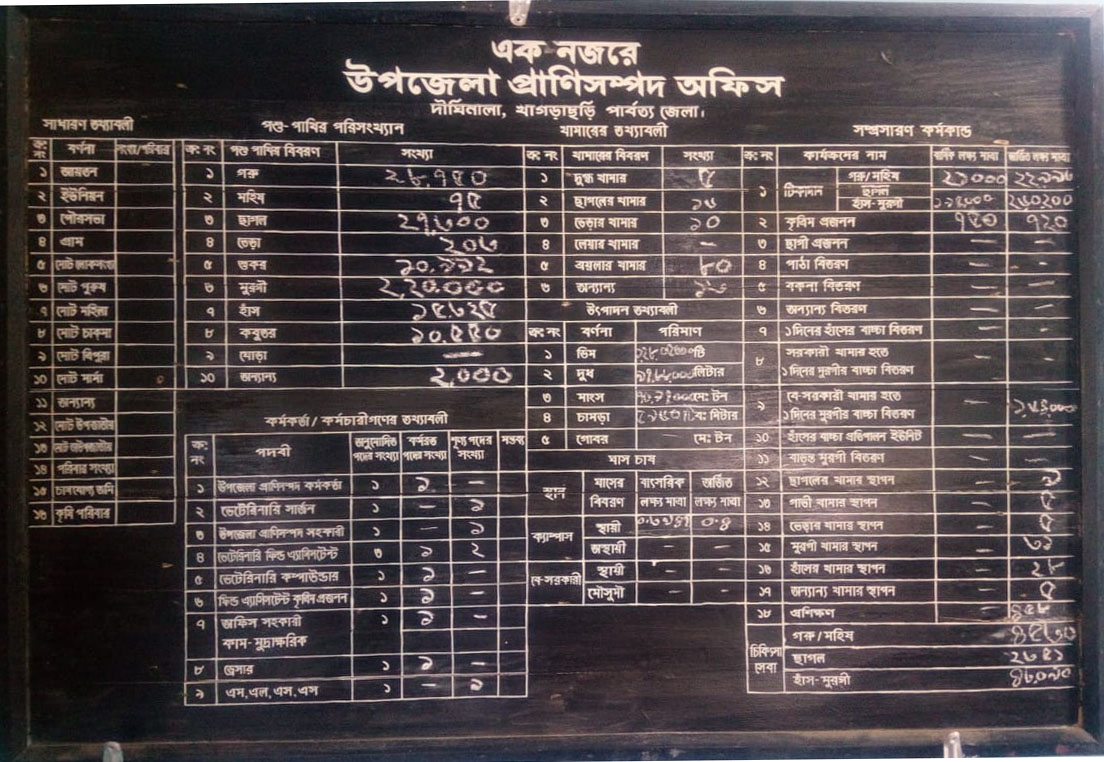 এক নজরে
উপজেলা প্রাণিসম্পদ অফিস
দীঘিনালা, খাগড়াছড়ি পার্বত্য জেলা।
সাধারণ তথ্যাবলী
ক্র: নং বর্ণনা সংখ্যা/পরিমান
১ আয়তন
২ ইউনিয়ন
৩ পৌরসভা
৪ গ্রাম
৫ মোট লোকসংখ্যা
৬ মোট পুরুষ
৭ মোট মহিলা
৮ মোট চাকমা
৯ মোট ত্রিপুরা
১০ মোট মার্মা ০
১১ অন্যান্য
১২ মোট উপজাতীয়
১৩ মোট অউপজাতীয়
১৪ পরিবার সংখ্যা
১৫ চাষযোগ্য জমি
১৬ কৃষি পরিবার
পশু-পাখির পরিসংখ্যান
ক্র: নং পশু পাখির বিবরণ সংখ্যা
১ গরু ২৮,৭৫০
২ মহিষ ৭৫
৩ ছাগল ২৭,৬০০
৪ ভেড়া ২০৬
৫ শুকর ১০,১১২
৬ মুরগী ২,২০,০০০
৭ হাঁস ১৫৬২৫
৮ কবুতর ১০,৫৫০
৯ ঘোড়া —
১০ অন্যান্য ২,০০০
কর্মকর্তা/ কর্মচারীগণের তথ্যাবলী
ক্র: নং পদবী অনুমোদিত পদের সংখ্যা কর্মরত পদের সংখ্যা শূণ্য পদের সংখ্যা মন্তব্য
১ উপজেলা প্রাণিসম্পদ কর্মকর্তা ১ ১ —
২ ভেটেরিনারি সার্জন ১ — ১
৩ উপজেলা প্রাণিসম্পদ সহকারী ১ — ১
৪ ভেটেরিনারি ফিল্ড এ্যাসিসটেন্ট ৩ ১ ২
৫ ভেটেরিনারি কম্পাউন্ডার ১ ১ —
৬ ফিল্ড এ্যাসিসটেন্ট কৃত্রিম প্রজনন ১ ১ —
৭ অফিস সহকারী ১ ১ —
কাম-মুদ্রাক্ষরিক
৮ ড্রেসার ১ ১ —
৯ এম,এল,এস,এস ১ — ১
খামারের তথ্যাবলী
ক্র: নং খামারের বিবরণ সংখ্যা
১ দুগ্ধ খামার ৫
২ ছাগলের খামার ১৫
৩ ভেড়ার খামার ১০
৪ লেয়ার খামার —
৫ ব্রয়লার খামার ৮০
৬ অন্যান্য
উৎপাদন তথ্যাবলী
ক্র: নং বর্ণনা পরিমাণ
১ ডিম টি
২ দুধ লিটার
৩ মাংস মে: টন
৪ চামড়া ব: মিটার
৫ গোবর মে: টন
ঘাস চাষ
স্থান ঘাসের বিবরণ বাৎসরিক লক্ষ্য মাত্রা অর্জিত লক্ষ্য মাত্রা
ক্যাম্পাস স্থায়ী ০.৪
অস্থায়ী — —
বে-সরকারী স্থায়ী — —
মৌসুমী — —
সম্প্রসারণ কর্মকান্ড
ক্র: নং কার্যক্রমের নাম বার্ষিক লক্ষ্য মাত্রা অর্জিত লক্ষ্য মাত্রা
১ টিকাদান গরু/মহিষ ২১০০০
ছাগল
হাঁস-মুরগী ২৬০২০০
২ কৃত্রিম প্রজনন ৭৫০ ৭২০
৩ ছাগী প্রজনন — —
৪ পাঠা বিতরণ — —
৫ বকনা বিতরণ — —
৬ অন্যান্য বিতরণ — —
৭ ১দিনের হাঁসের বাচ্চা বিতরণ — —
৮ সরকারী খামার হতে
১দিনের মুরগীর বাচ্চা বিতরণ — —
৯ বে-সরকারী খামার হতে
১দিনের মুরগীর বাচ্চা বিতরণ —
১০ হাঁসের বাচ্চা প্রতিপালন ইউনিট — —
১১ বাড়ন্ত মুরগী বিতরণ — —
১২ ছাগলের খামার স্থাপন —
১৩ গাভী খামার স্থাপন —
১৪ ভেড়ার খামার স্থাপন —
১৫ মুরগী খামার স্থাপন — ৬১
১৬ হাঁসের খামার স্থাপন — ২৮
১৭ অন্যান্য খামার স্থাপন —
১৮ প্রশিক্ষণ —
চিকিৎসা সেবা গরু/মহিষ
ছাগল ২৬৪১
হাঁস-মুরগী